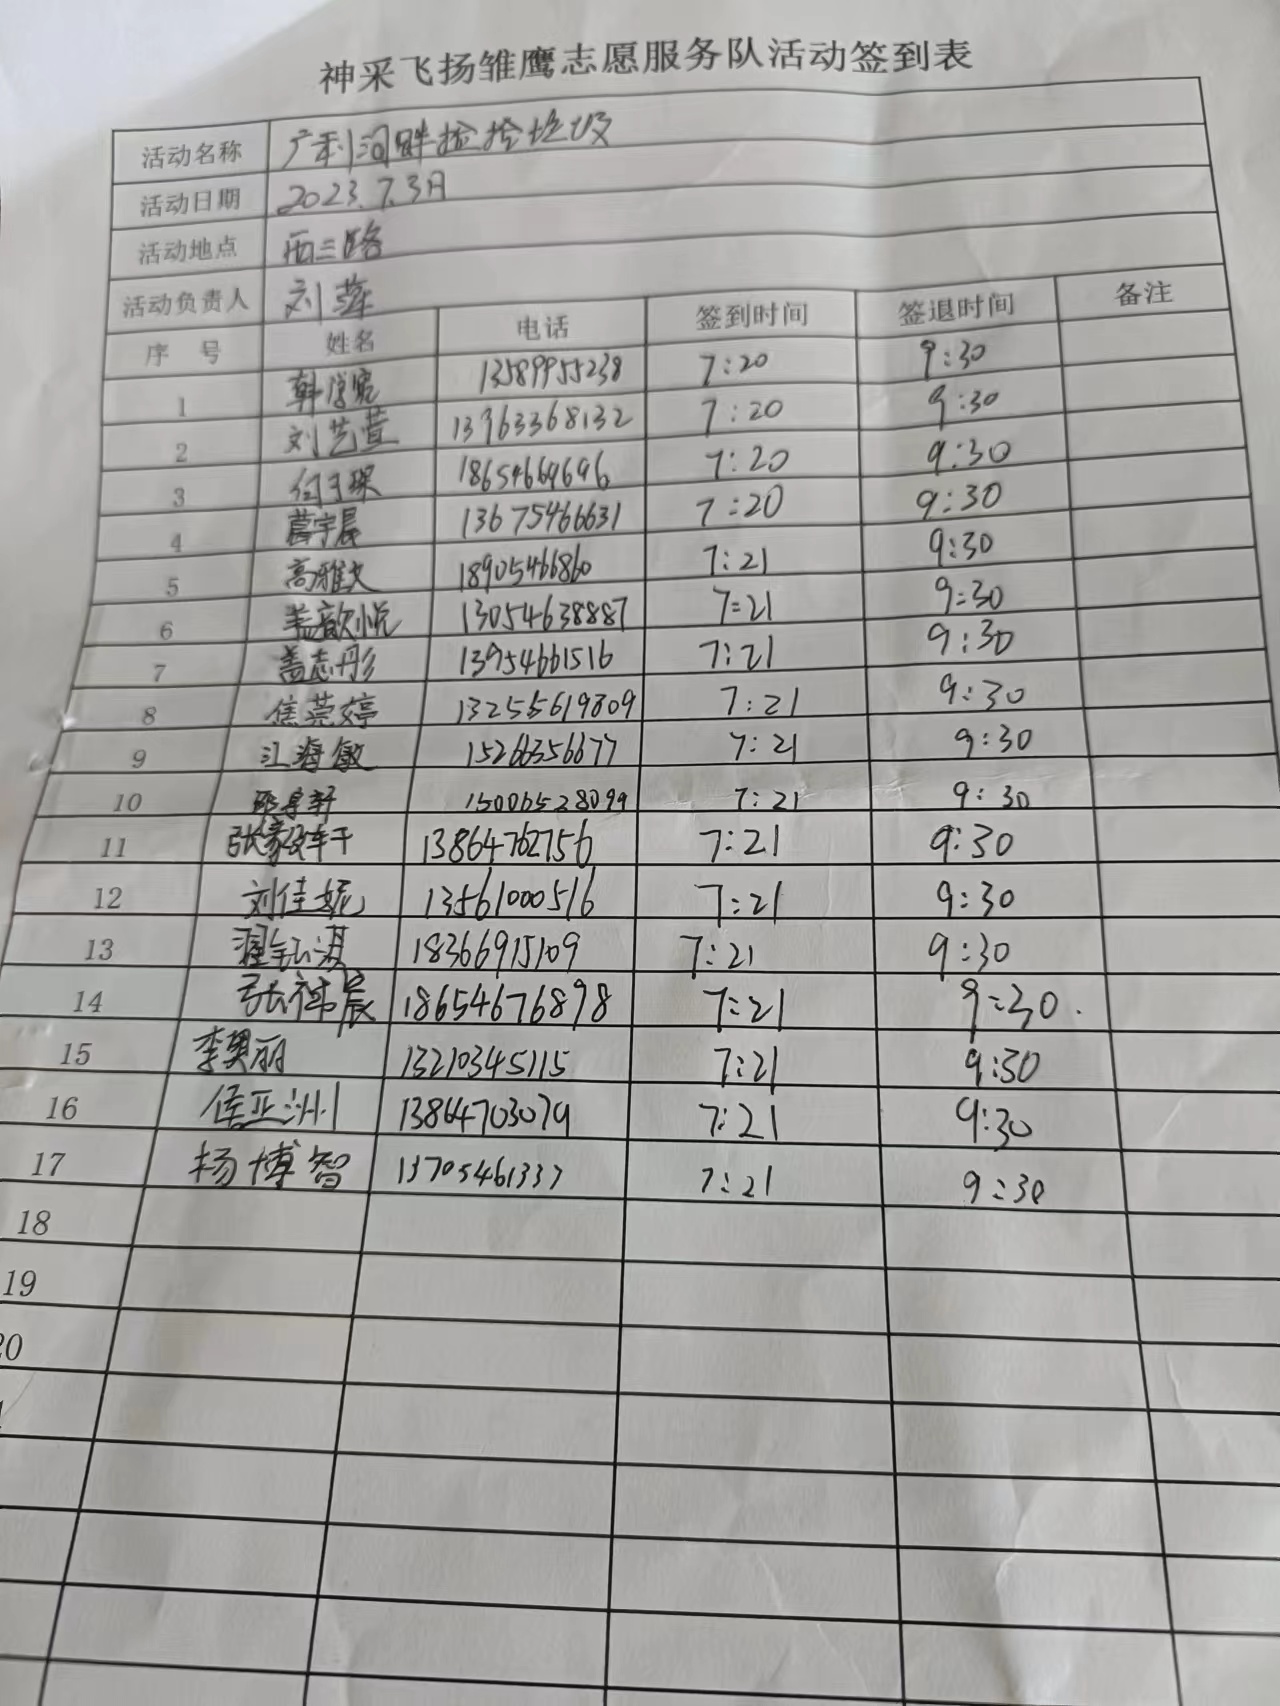 神采飞扬雏鹰志愿服务队活动签到表
活动名称 广利河畔捡拾垃圾
活动日期 2023.7.3日
活动地点 西三路
活动负责人 刘萍
序 号 姓名 电话 签到时间 签退时间 备注
1 13589955238 7:20 9:30
2 刘艺萱 13963368132 7:20 9:30
3 18654669696 7:20 9:30
4 葛宇晨 13675466631 7:20 9:30
5 高雅文 18905466860 7:21 9:30
6 盖歆悦 13054638887 7:21 9:30
7 盖志彤 13954661516 7:21 9:30
8 焦莞婷 13255619809 7:21 9:30
9 江海敏 15266356677 7:21 9:30
10 15006528099 7:21 9:30
11 13864762756 7:21 9:30
12 刘佳妮 13561000516 7:21 9:30
13 18366915109 7:21 9:30
14 张祎晨 18654676898 7:21 9:30.
15 李奥丽 13210345115 7:21 9:30
16 侯亚洲 13864703079 7:21 9:30
17 杨博智 13705461337 7:21 9:30
18
19
20